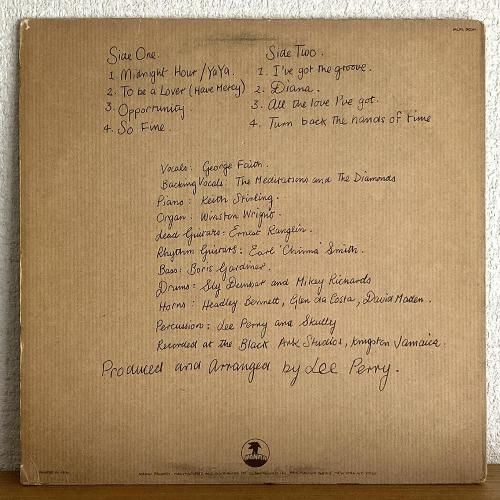 Side One.
1. Midnight Hour / YaYa.
2. To be a Lover (Have Mercy)
3. Opportunity.
4. So Fine.
Side Two.
1. I've got the groove.
2. Diana.
3. All the love I've got.
4. Turn back the hands of time
Vocals: George Faith.
Backing Vocals: The Meditations and The Diamonds
Piano: Keith Stirling.
Organ: Winston Wright.
Lead Guitars: Ernest Ranglin.
Rhythm Guitars: Earl 'Chinna' Smith.
Bass: Boris Gardiner.
Drums: Sly Dunbar and Mikey Richards
Horns: Headley Bennett, Glen da Costa, David Maden.
Percussion: Lee Perry and Skully
Recorded at the Black Ark Studios, Kingston Jamaica.
Produced and Arranged by Lee Perry.